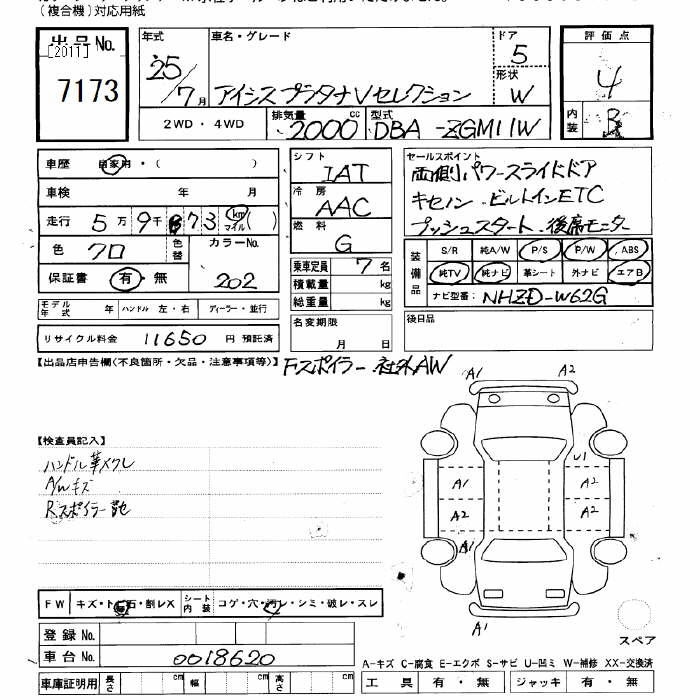 (複合機)対応用紙
出品No.
[2011]
7173
年式 25/7月
車名・グレード
アイシスプラタナVセレクション
ドア 5
形状 W
評価点 4
内装 B
2WD・4WD
排気量 2000 cc
型式 DBA-ZGM11W
車歴 自家用・( )
車検 年 月
走行 5万9千873 km マイル( )
色 クロ 色替 カラーNo. 202
保証書 有・無
モデル年式 年 ハンドル 左・右 ディーラー・並行
リサイクル料金 11650 円 預託済
シフト IAT
冷房 AAC
燃料 G
乗車定員 7 名
積載量 kg
総重量 kg
名変期限 月 日
セールスポイント
両側パワースライドドア
キセノン.ビルトインETC
プッシュスタート.後席モニター
装備品 S/R 純A/W P/S P/W ABS
純TV 純ナビ 革シート 外ナビ エアB
ナビ型番: NHZD-W62G
後日品
【出品店申告欄(不良箇所・欠品・注意事項等)】 Fスポイラー 社外AW
【検査員記入】
ハンドル革メクレ
A/Wキズ
Rスポイラー
A1 A2
U1
A1 A2
A2 A2
A1
A1
スペア
FW キズ・ト石・割レX シート内装 コゲ・穴・汚レ・シミ・破レ・スレ
登録No.
車台No. 0018620
車庫証明用 長さ cm 幅 cm 高さ cm
A-キズ C-腐食 E-エクボ S-サビ U-凹ミ W-補修 XX-交換済
工具 有・無 ジャッキ 有・無